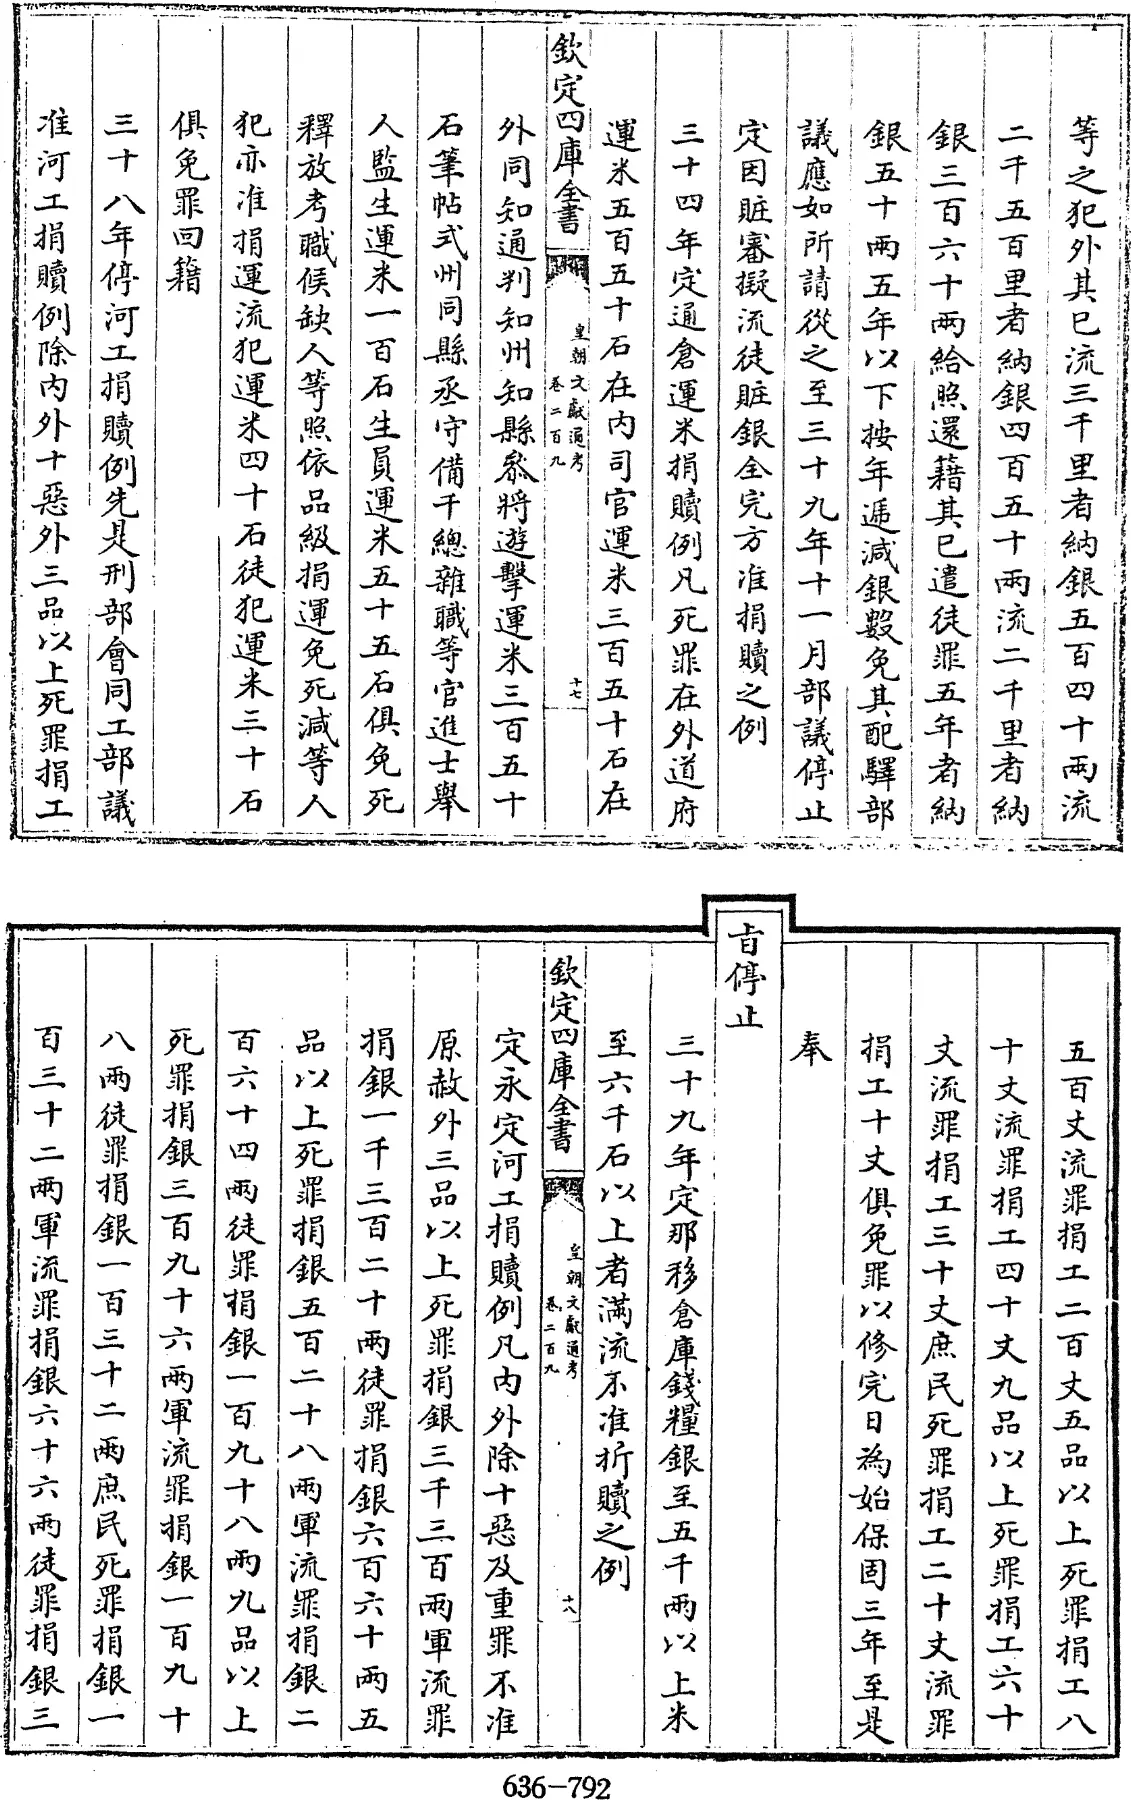 等之犯外其已流三千里者納銀五百四十兩流
二千五百里者納銀四百五十兩流二千里者納
銀三百六十兩給照還籍其已遣徒罪五年者納
銀五十兩五年以下按年逓減銀數免其配驛部
議應如所請從之至三十九年十一月部議停止
定因贓審擬流徒贓銀全完方准捐贖之例
三十四年定通倉運米捐贖例凡死罪在外道府
運米五百五十石在內司官運米三百五十石在
欽定四庫全書
皇朝文獻通考
卷二百九
十七
外同知通判知州知縣叅將遊擊運米三百五十
石筆帖式州同縣丞守備千總雜職等官進士舉
人監生運米一百石生員運米五十五石俱免死
釋放考職候缺人等照依品級捐運免死減等人
犯亦准捐運流犯運米四十石徒犯運米三十石
俱免罪回籍
三十八年停河工捐贖例先是刑部會同工部議
准河工捐贖例除內外十惡外三品以上死罪捐工
五百丈流罪捐工二百丈五品以上死罪捐工八
十丈流罪捐工四十丈九品以上死罪捐工六十
丈流罪捐工三十丈庶民死罪捐工二十丈流罪
捐工十丈俱免罪以修完日為始保固三年至是
奉
旨停止
三十九年定那移倉庫錢糧銀至五千兩以上米
至六千石以上者滿流不准折贖之例
欽定四庫全書
皇朝文獻通考
卷二百九
十八
定永定河工捐贖例凡內外除十惡及重罪不准
原赦外三品以上死罪捐銀三千三百兩軍流罪
捐銀一千三百二十兩徒罪捐銀六百六十兩五
品以上死罪捐銀五百二十八兩軍流罪捐銀二
百六十四兩徒罪捐銀一百九十八兩九品以上
死罪捐銀三百九十六兩軍流罪捐銀一百九十
八兩徒罪捐銀一百三十二兩庶民死罪捐銀一
百三十二兩軍流罪捐銀六十六兩徒罪捐銀三
636-792